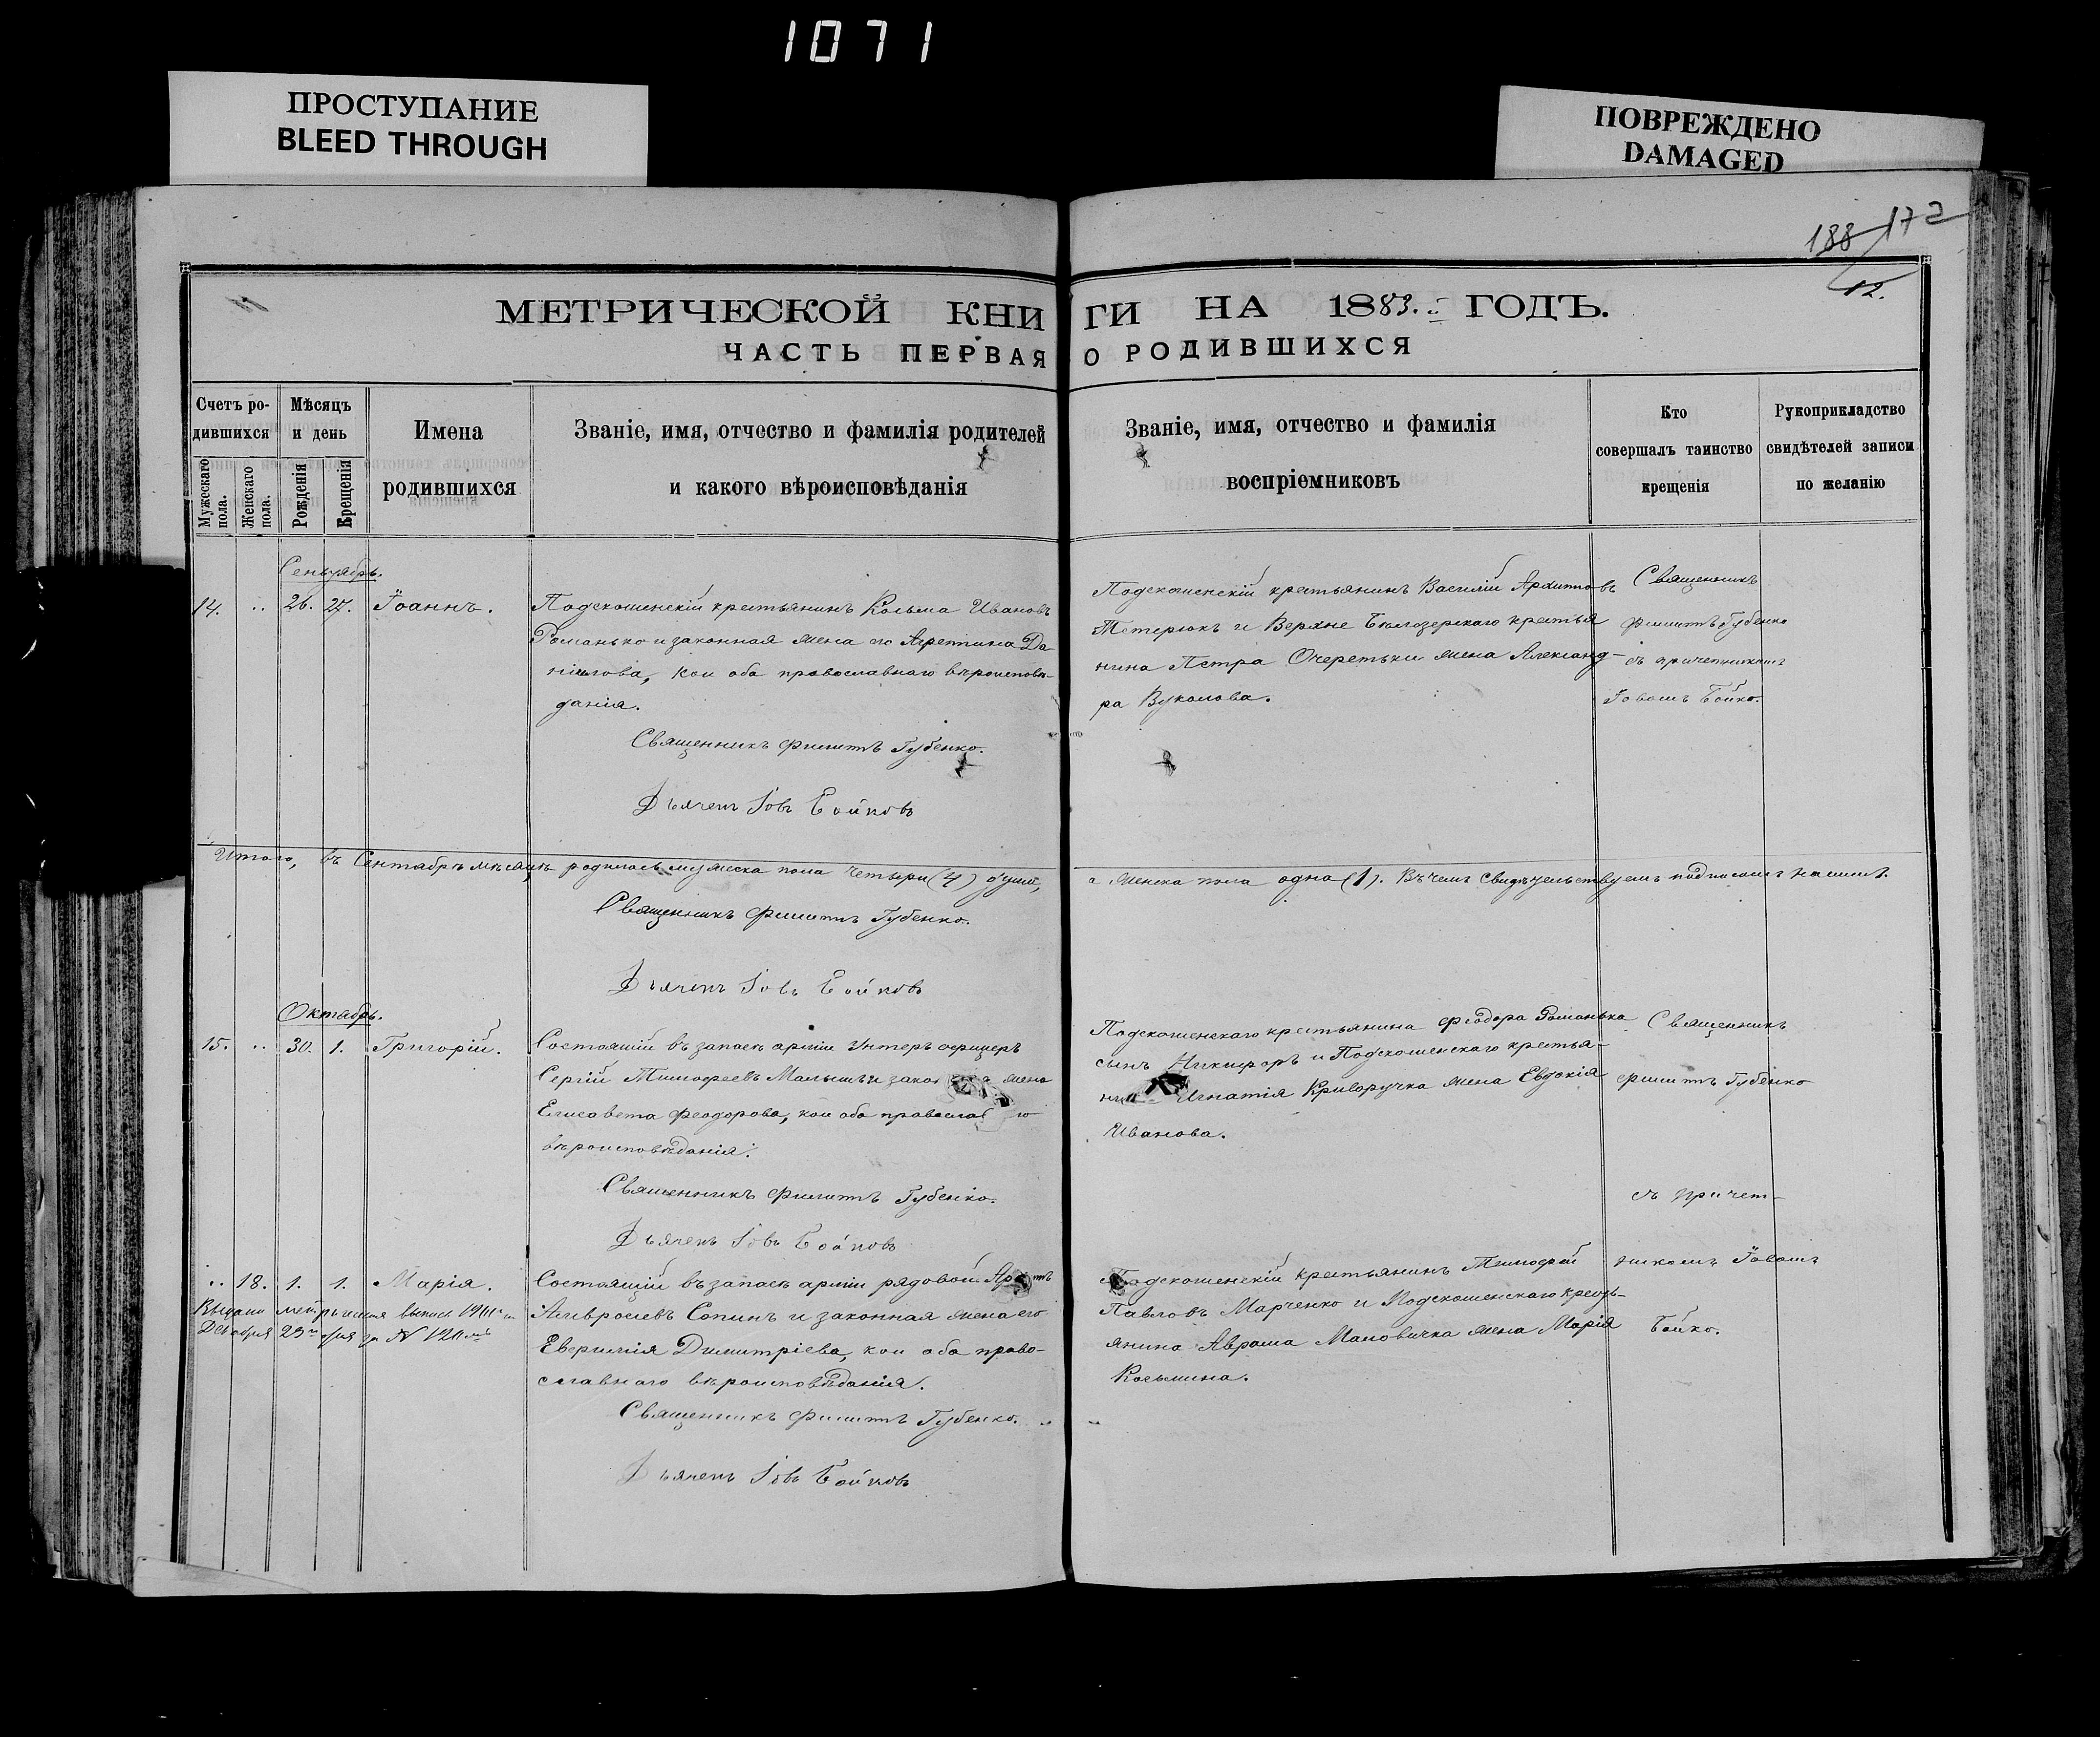 1071
ПРОСТУПАНИЕ
BLEED THROUGH
ПОВРЕЖДЕНО
DAMAGED
188 172
12.
МЕТРИЧЕСКОЙ КНИГИ НА 1883. ГОДЪ.
ЧАСТЬ ПЕРВАЯ О РОДИВШИХСЯ
Счетъ ро-
дившихся
Мужескаго пола.
Женскаго пола.
Мѣсяцъ
и день
Рожденія
Крещенія
Имена
родившихся
Званіе, имя, отчество и фамилія родителей
и какого вѣроисповѣданія
Званіе, имя, отчество и фамилія
воспріемниковъ
Кто
совершалъ таинство
крещенія
Рукоприкладство
свидѣтелей записи
по желанію
Сентябрь.
14. .. 26. 27. Іоаннъ.
Подскошенскій крестьянинъ Косьма Ивановъ
Романько и законная жена его Агрепина Да-
ніилова, кои оба православнаго вѣроисповѣ-
данія.
Священникъ Филиппъ Губенко.
Дьячекъ Іовъ Бойковъ
Подскошенскій крестьянинъ Василій Архиповъ
Тетерюкъ и Верхне Бѣлозерскаго крестья
нина Петра Очеретьки жена Александ-
ра Вуколова.
Священникъ
Филиппъ Губенко
съ причетникомъ
Іовомъ Бойко.
Итого, въ Сентябрѣ мѣсяцѣ родилось мужеска пола четыри (4) души,
а женска пола одна (1). Въ чемъ свидѣтельствуемъ подписомъ нашимъ.
Священникъ Филиппъ Губенко.
Дьячекъ Іовъ Бойковъ
Октябрь.
15. .. 30. 1. Григорій.
Состоящій въ запасѣ арміи Унтеръ офицеръ
Сергій Тимофеевъ Малышъ и жена
Елисавета Феодорова, кои оба
вѣроисповѣданія.
Священникъ Филиппъ Губенко.
Дьячекъ Іовъ Бойковъ
Подскошенскаго крестьянина Феодора Романька
сынъ Никифоръ и Подскошенскаго крестья-
Игнатія Криворучка жена Евдокія
Иванова.
Священникъ
Филиппъ Губенко
съ причет-
.. 18. 1. 1. Марія.
Состоящій въ запасѣ арміи рядовой
Амвросіевъ Сопинъ и законная жена его
Евфимія Димитріева, кои оба право-
славнаго вѣроисповѣданія.
Священникъ Филиппъ Губенко.
Дьячекъ Іовъ Бойковъ
Подскошенскій крестьянинъ Тимофей
Павловъ Марченко и Подскошенскаго кресть-
янина Аврама Маловичка жена Марія
Косьмина.
никомъ Іовомъ
Бойко.
метрическая выпись
Декабря 23 дня за №